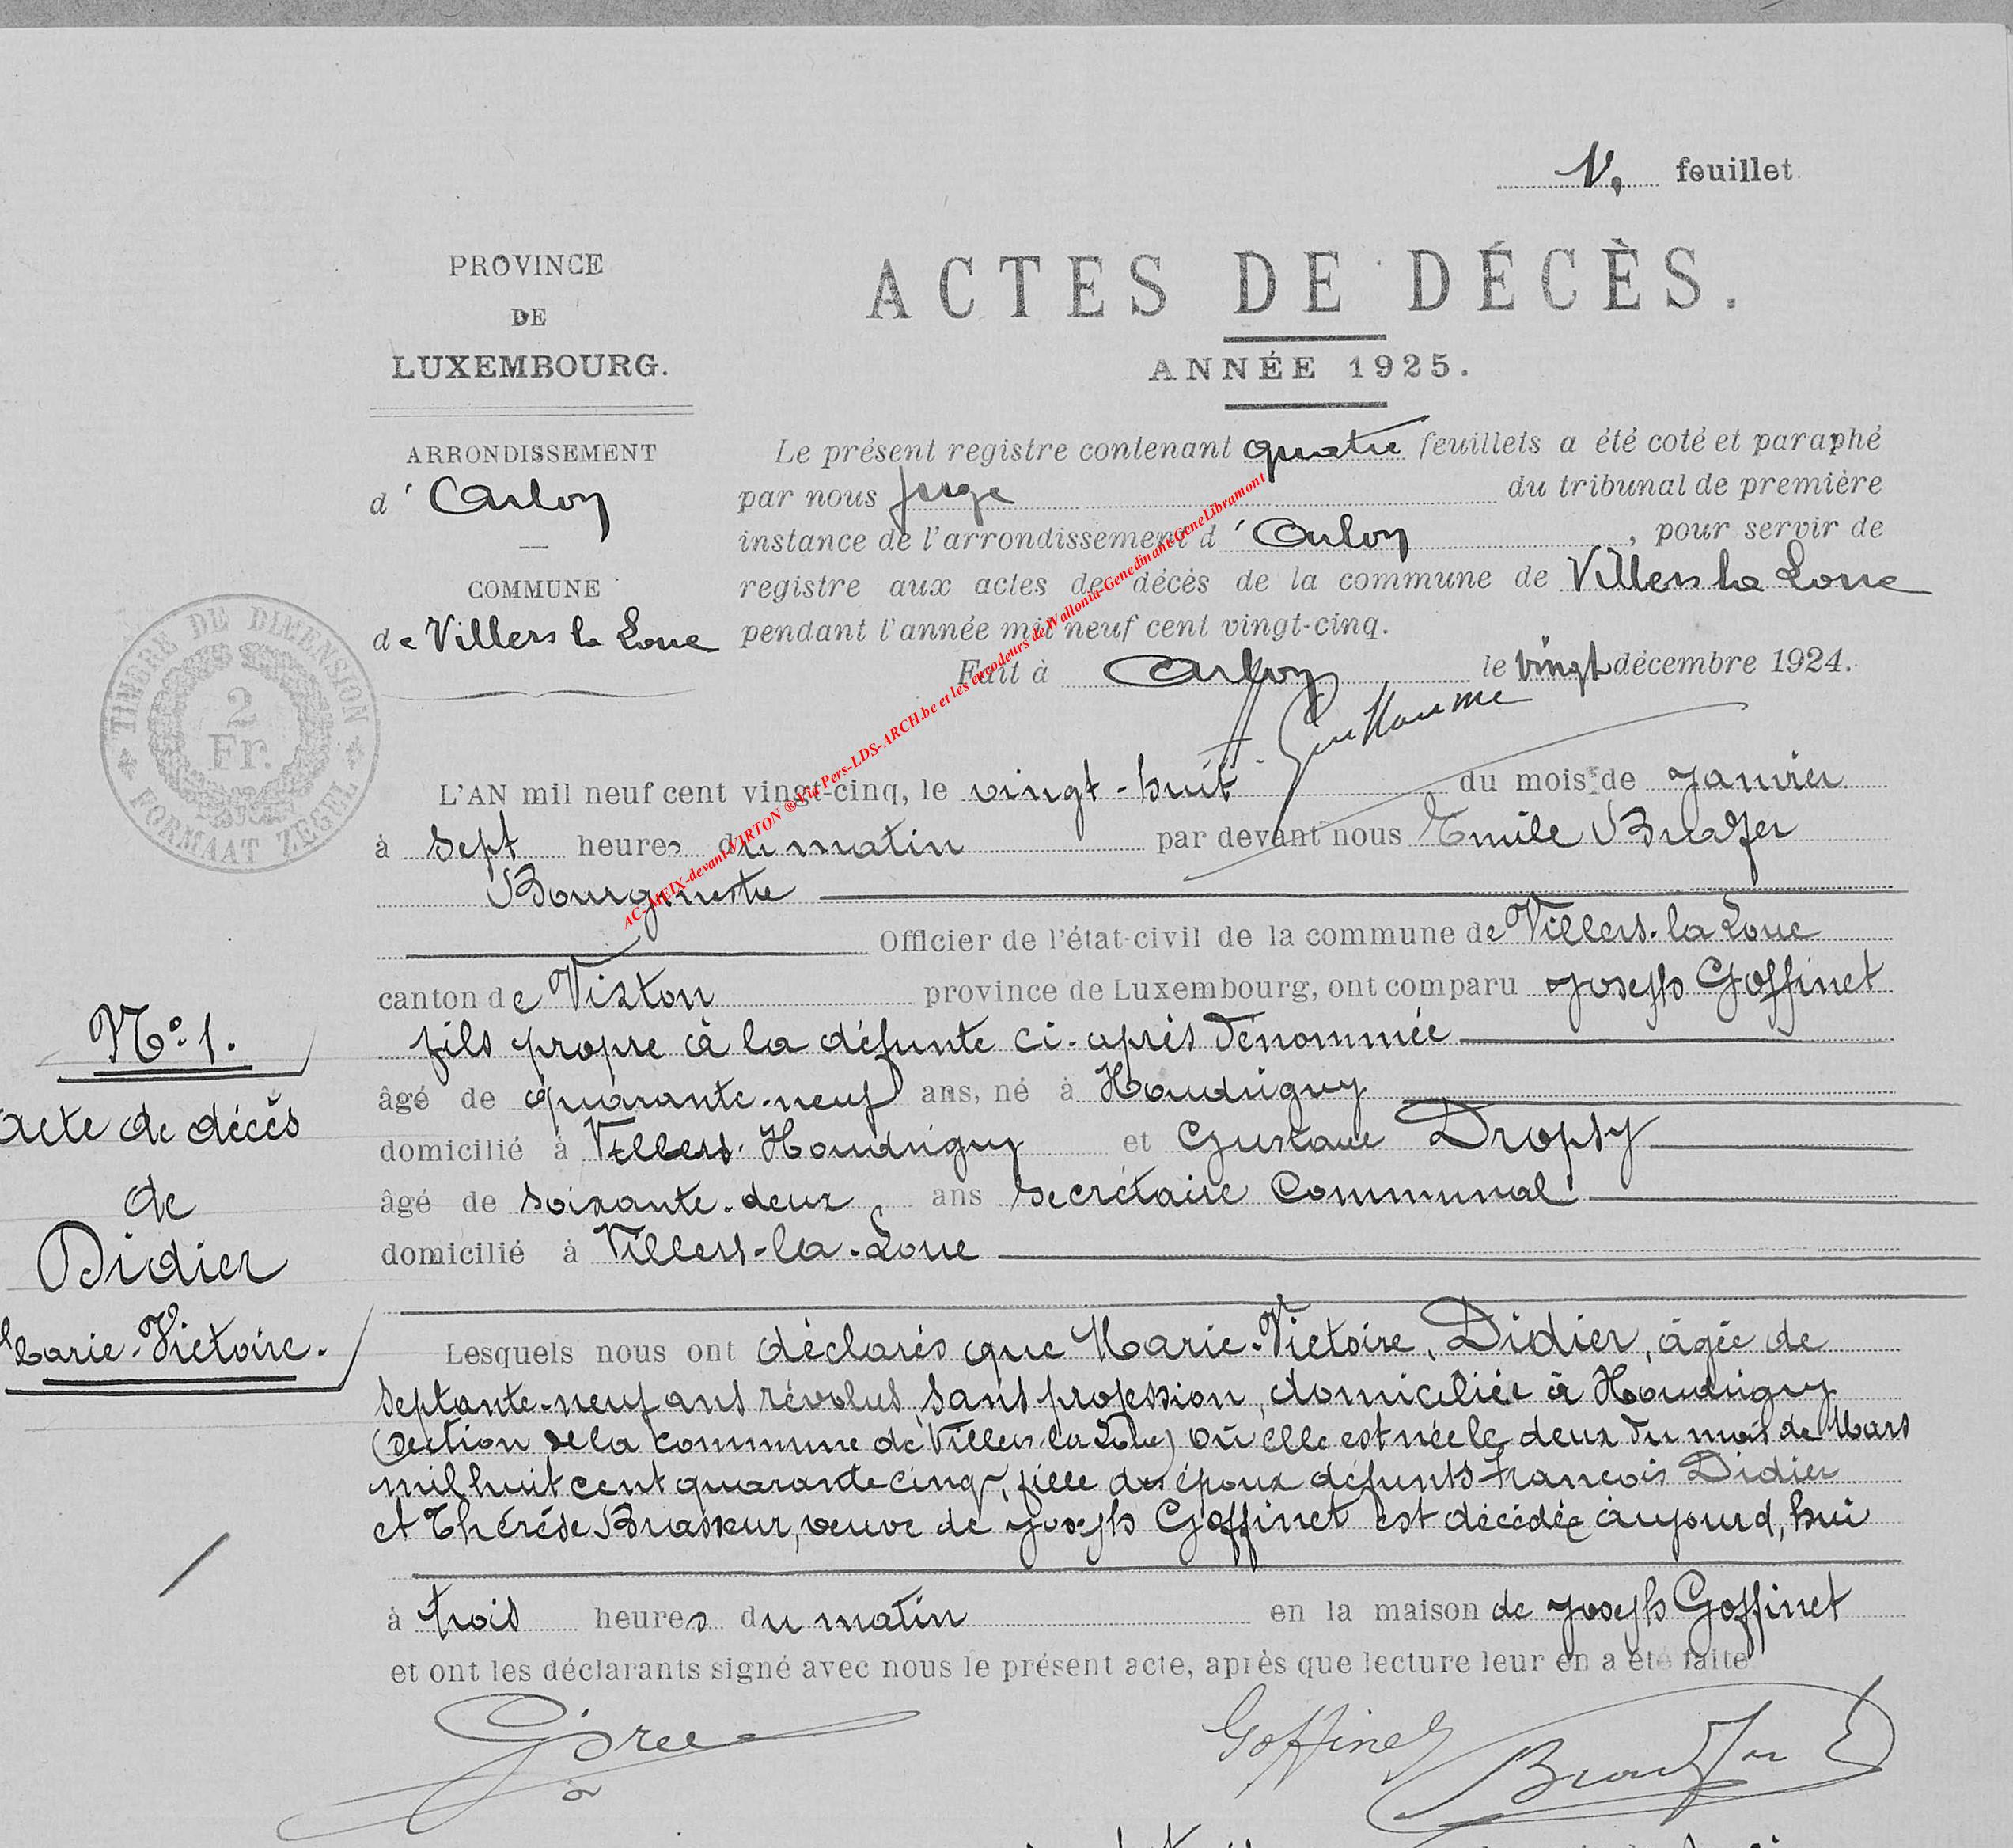 1er feuillet
PROVINCE
DE
LUXEMBOURG.
ACTES DE DÉCÈS.
ANNÉE 1925.
ARRONDISSEMENT
d'Arlon
COMMUNE
de Villers la Loue
TIMBRE DE DIMENSION
2
Fr.
FORMAAT ZEGEL
Le présent registre contenant quatre feuillets a été coté et paraphé
par nous juge du tribunal de première
instance de l'arrondissement d'Arlon, pour servir de
registre aux actes de décès de la commune de Villers la Loue
pendant l'année mil neuf cent vingt-cinq.
Fait à Arlon le vingt décembre 1924.
Guillaume
AC-MEIX-devant-VIRTON ® Via Pers-LDS-ARCH.be et les encodeurs de Wallonia-Genedinant-GeneLibramont
L'AN mil neuf cent vingt-cinq, le vingt-huit du mois de Janvier
à sept heures du matin par devant nous Emile
Bourgmestre
Officier de l'état-civil de la commune de Villers-la-Loue
canton de Virton province de Luxembourg, ont comparu Joseph Goffinet
fils propre à la défunte ci-après dénommée
âgé de quarante-neuf ans, né à Houdrigny
domicilié à Villers-Houdrigny et Gustave Dropsy
âgé de soixante-deux ans secrétaire Communal
domicilié à Villers-la-Loue
N° 1.
acte de décès
de
Didier
Marie-Victoire.
Lesquels nous ont déclarés que Marie-Victoire, Didier, âgée de
septante-neuf ans révolus, sans profession, domiciliée à Houdrigny
(section de la commune de Villers-la-Loue) où elle est née le deux du mois de Mars
mil huit cent quarante cinq, fille des époux défunts François Didier
et Thérèse Brasseur, veuve de Joseph Goffinet est décédée aujourd,hui
à trois heures du matin en la maison de Joseph Goffinet
et ont les déclarants signé avec nous le présent acte, après que lecture leur en a été faite
Goffinet